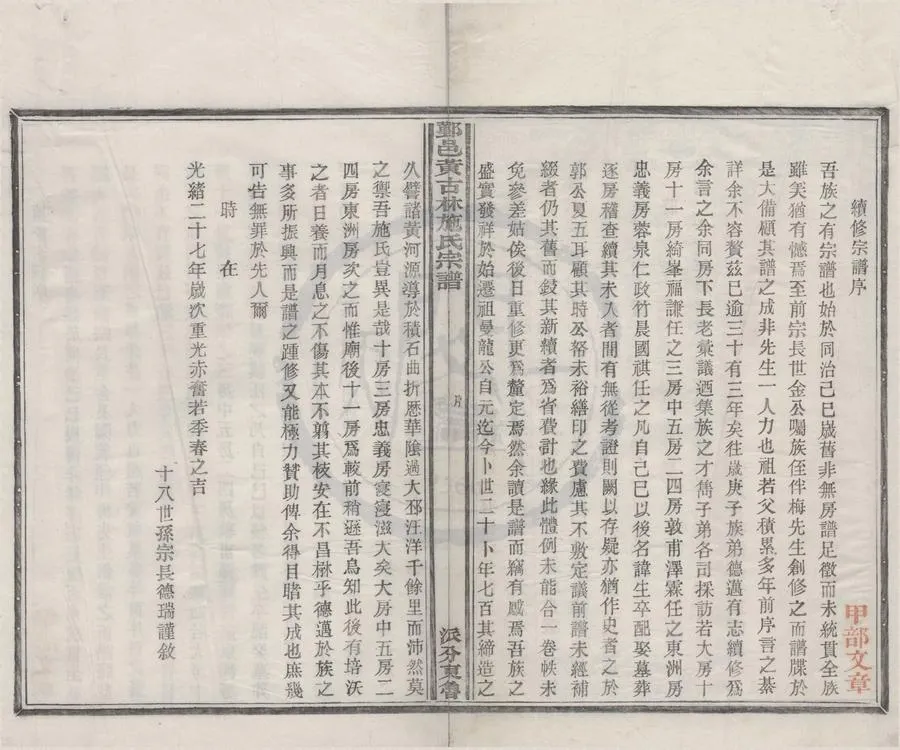 續修宗譜序
吾族之有宗譜也始於同治己巳歲舊非無房譜足徵而未統貫全族
雖美猶有憾焉至前宗長世金公囑族侄伴梅先生創修之而譜牒於
是大備顧其譜之成非先生一人力也祖若父積累多年前序言之綦
詳余不容贅茲已逾三十有三年矣往歲庚子族弟德邁有志續修為
余言之余同房下長老彙議迺集族之才雋子弟各司採訪若大房十
房十一房綺峯福謙任之三房中五房二四房敦甫澤霖任之東洲房
忠義房蓉泉仁政竹晨國祺任之凡自己巳以後名諱生卒配娶墓葬
逐房稽查續其未入者間有無從考證則闕以存疑亦猶作史者之於
郭公夏五耳顧其時公帑未裕繕印之費慮其不敷定議前譜未經補
綴者仍其舊而錢其新續者為省費計也緣此體例未能合一卷帙未
免參差姑俟後日重修更為釐定焉然余讀是譜而竊有感焉吾族之
盛實發祥於始遷祖曼龍公自元迄今卜世二十卜年七百其締造之
鄞邑黃古林施氏宗譜
序
派分東魯
久譬諸黃河源導於積石曲折歷華陰過大邳汪洋千餘里而沛然莫
之禦吾施氏豈異是哉十房三房忠義房寖寖滋大矣大房中五房二
四房東洲房次之而惟廟後十一房為較前稍遜吾烏知此後有培沃
之者日養而月息之不傷其本不翦其枝安在不昌楙乎德邁於族之
事多所振興而是譜之踵修又能極力贊助俾余得目瞻其成也庶幾
可告無罪於先人爾
時在
光緒二十七年歲次重光赤奮若季春之吉
十八世孫宗長德瑞謹敘
甲部文章